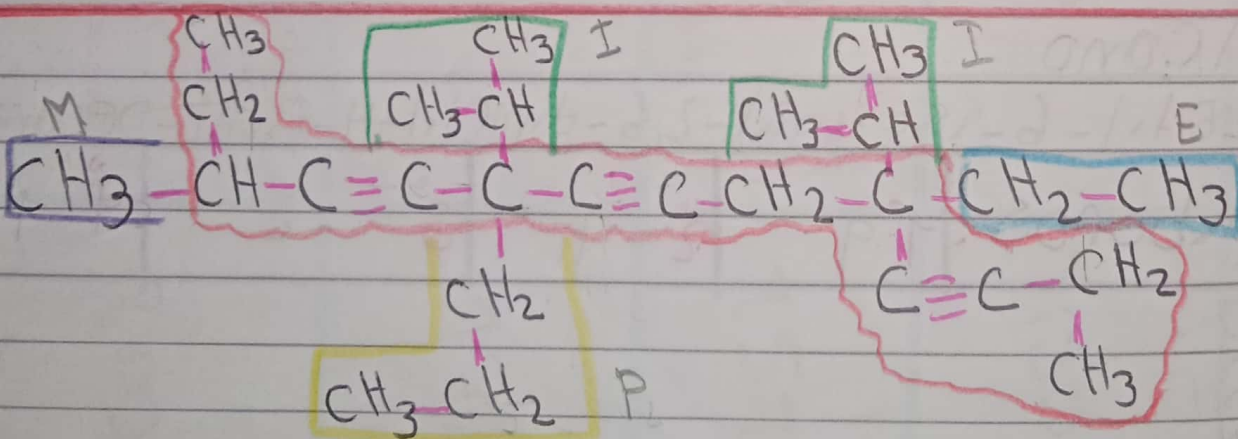 CH3 CH3 I CH3 I
M CH2 CH3-CH CH3-CH E
CH3-CH-C≡C-C-C≡C-CH2-C-CH2-CH3
CH2 C≡C-CH2
CH3-CH2 P CH3